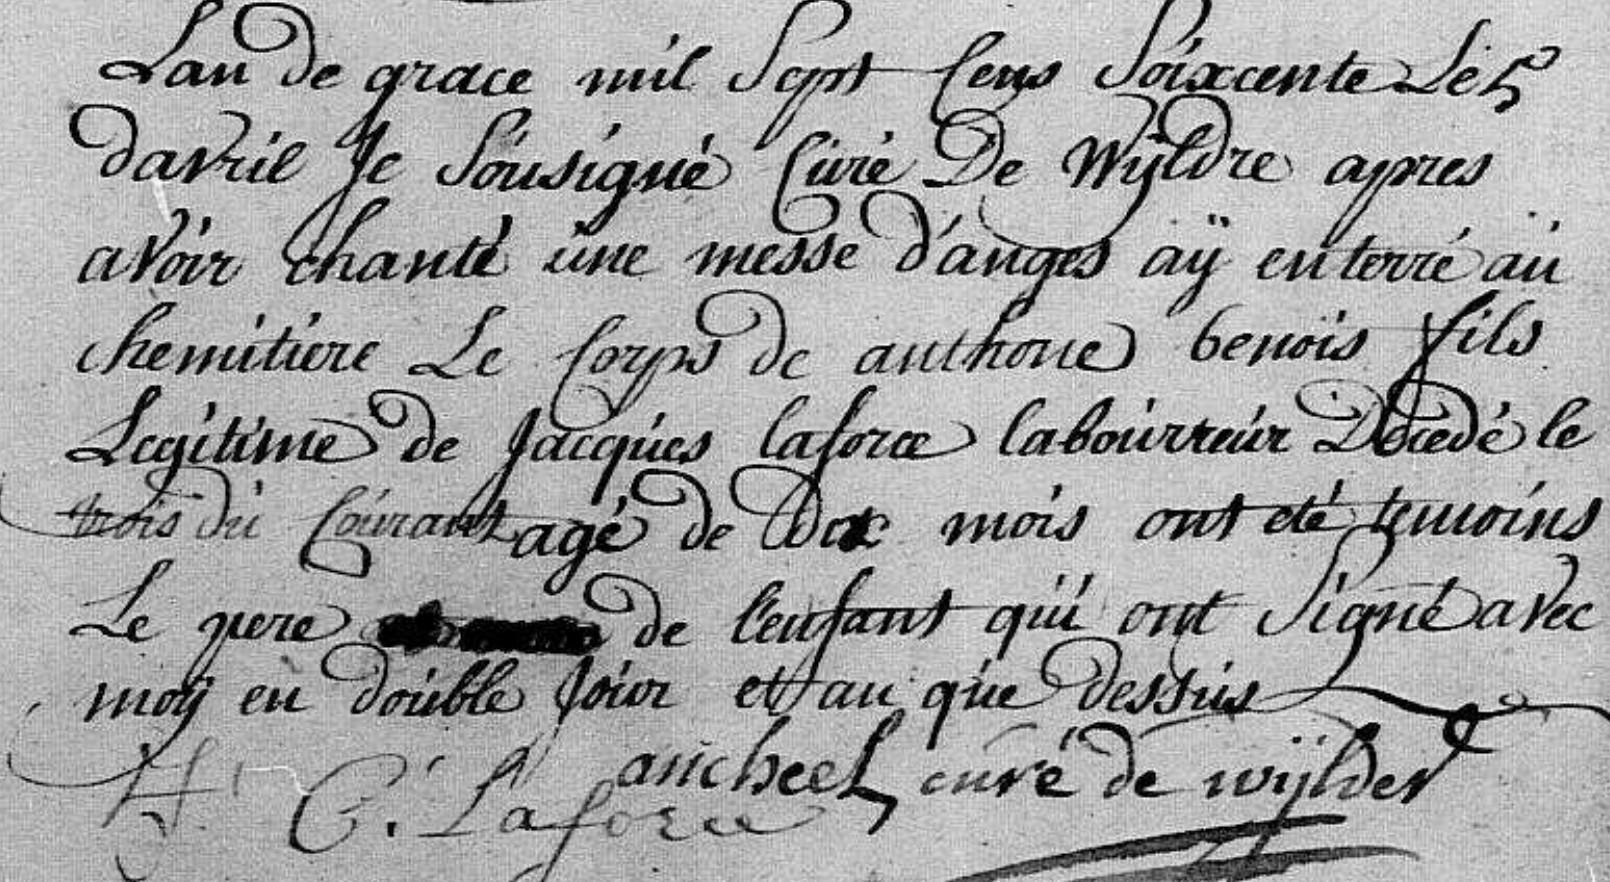 Lan de grace mil Sept Cens Soixcente Le 5
davril Je Sousigné Curé De Wÿldre apres
avoir chanté une messe d'anges aÿ enterré au
chemitiere Le Corps de anthone benois fils
Legitime de Jacques laforce labourreur Decedé le
trois du Courant agé de mois ont eté temoins
Le pere de l'enfant qui ont Signé avec
moÿ en double Jour et an que dessus
ancheel curé de wÿlder
Laforce